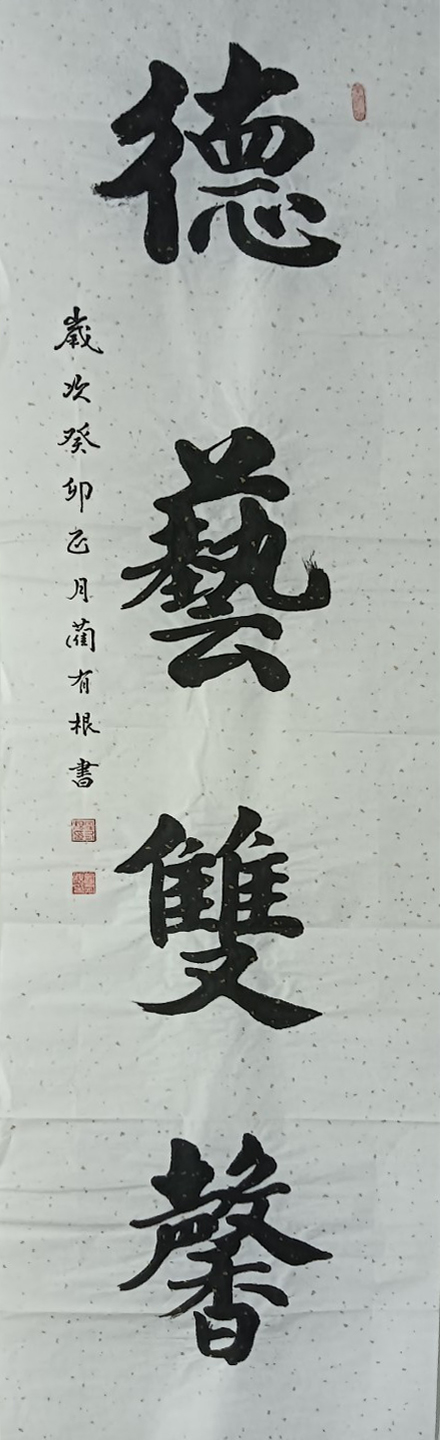 德藝雙馨
歲次癸卯正月藺有根書